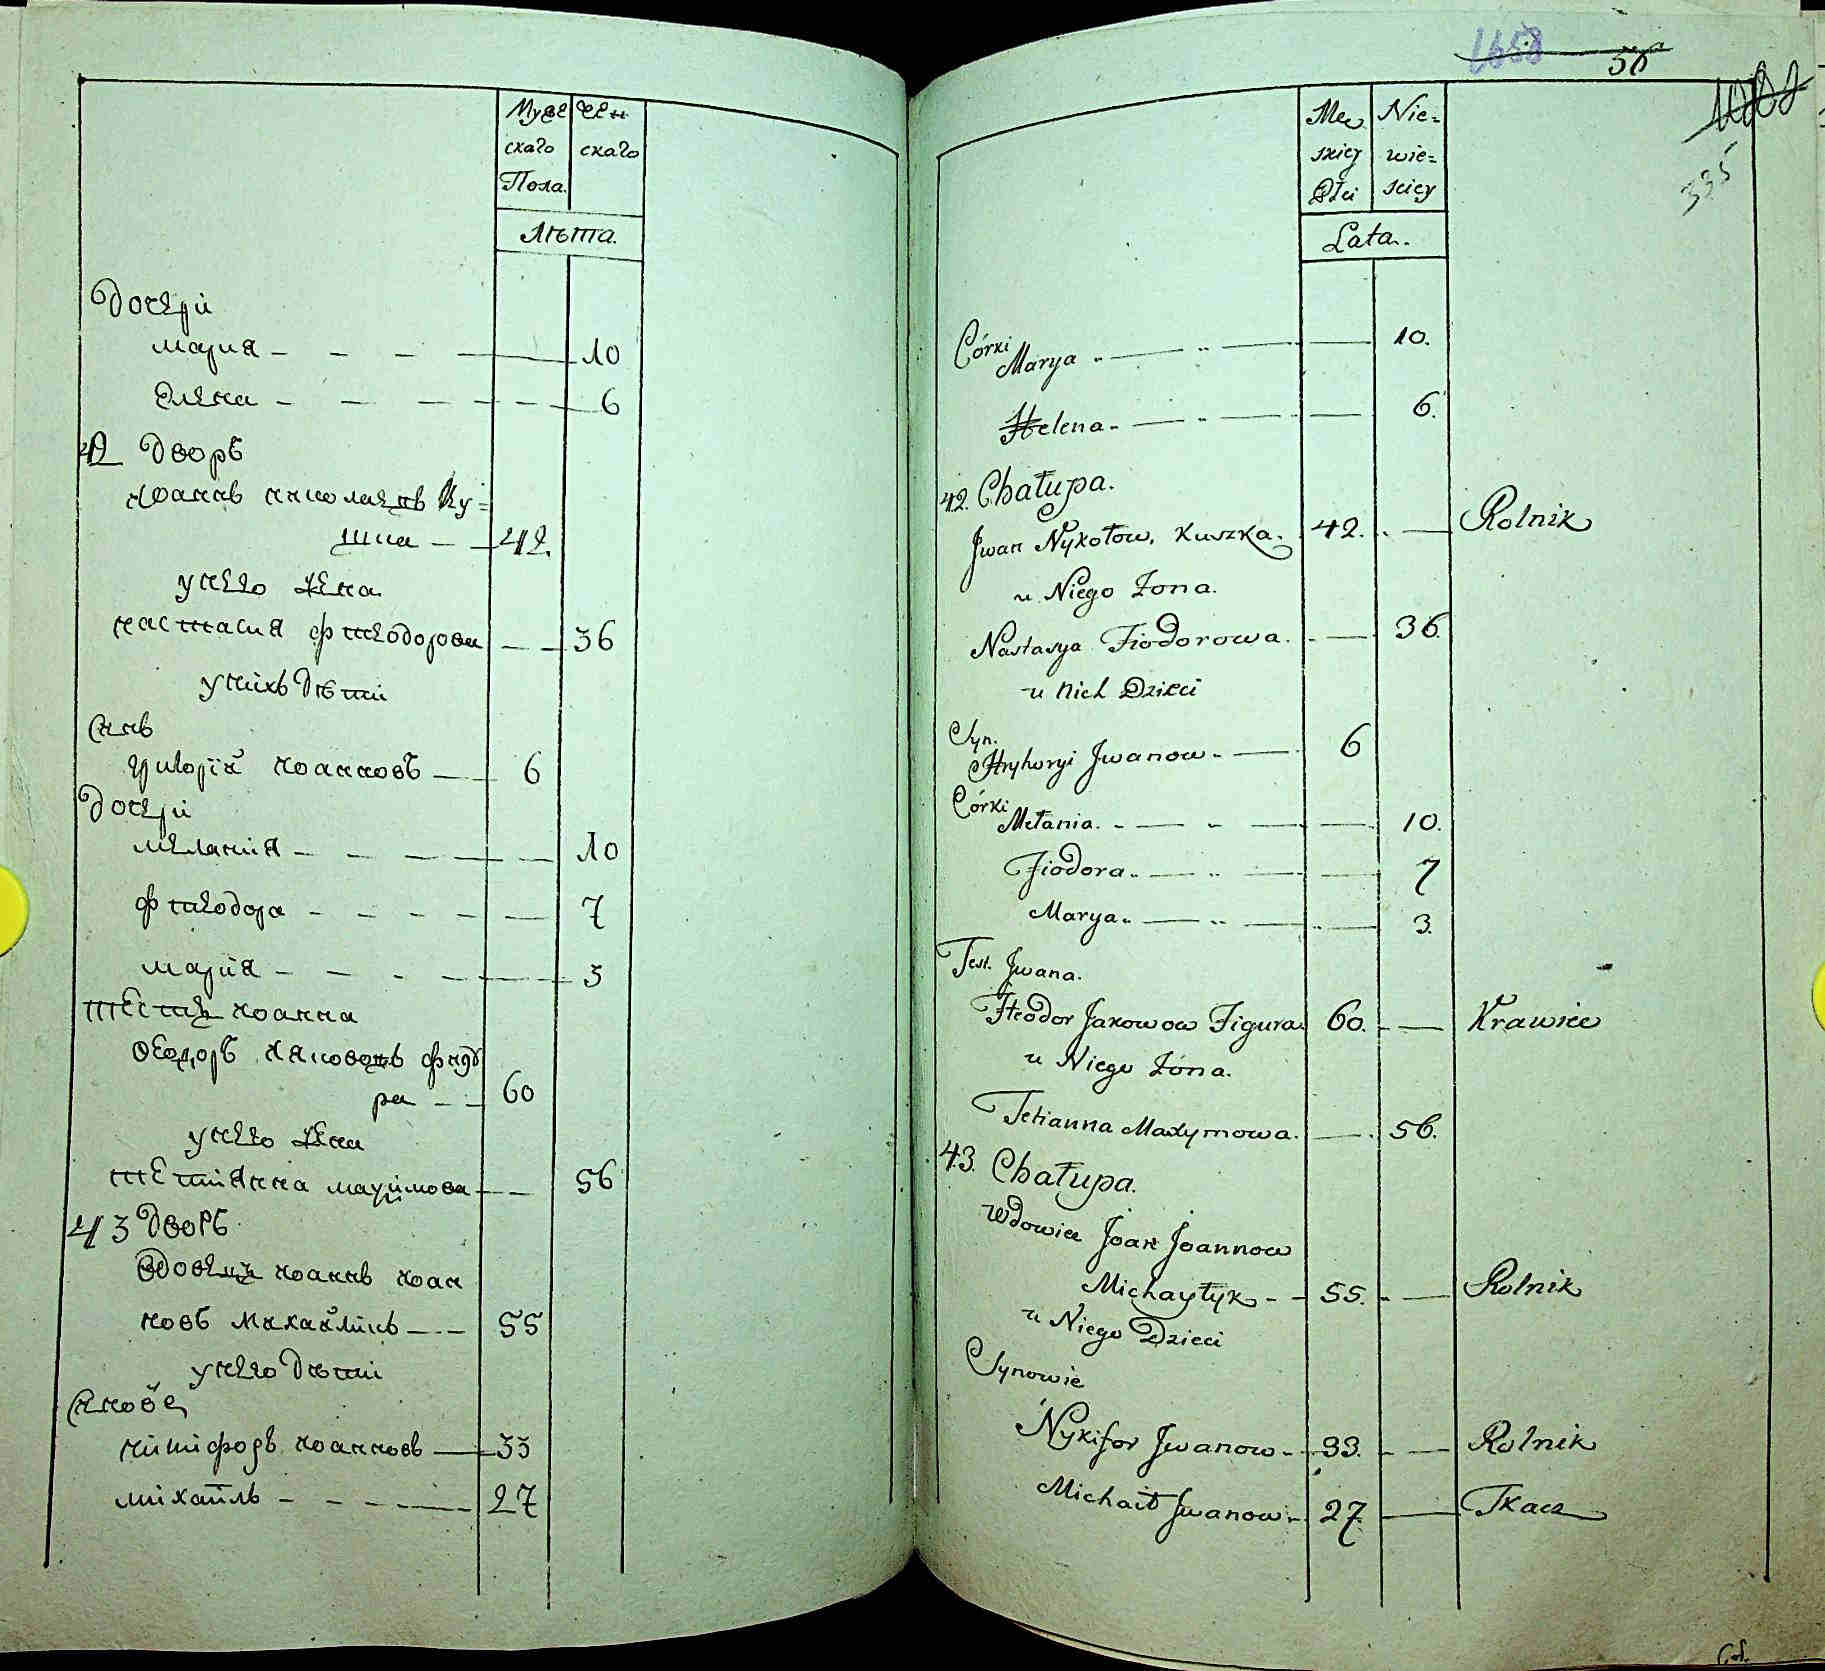 Муже
скаго
Пола.
Жен
скаго
Лѣта.
Дочери
Мария - - - - 10
Елена - - - - 6
42 Дворъ
Иоаннъ Николаевъ Ку=
шка - - 42.
у него жена
Настасия Фтеодорова - - 36
у нихъ дѣти
Синъ
Григорій Иоанновъ - 6
Дочери
Мелания - - - - 10
Фтеодора - - - - 7
Мария - - - - 3
Тесть Иоанна
Феодоръ Якововъ Фигу
ра - - 60
у него жена
Тетиянна Макимова - - 56
43 Дворъ
Вдовецъ Иоаннъ Иоан
новъ Михайликъ - - 55
у него дѣти
Синове
Никифоръ Иоанновъ - 33
Михаилъ - - - - 27
1658
56
335
Męz
skiey
Płci
Nie=
wie=
sciey
Lata.
Córki
Marya - - - 10.
Helena - - - 6.
42. Chałupa.
Jwan Nykołow. Kuszka. 42. - Rolnik
u Niego Zona.
Nastasya Fiodorowa. - 36.
u nich Dzieci
Syn.
Hryhoryi Jwanow - 6
Córki
Mełania. - - - 10.
Fiodora - - - 7
Marya - - - 3.
Test. Jwana.
Fteodor Jakowow Figura 60. - Krawiec
u Niego Zóna.
Tetianna Maxymowa. - 56.
43. Chałupa.
Wdowiec Joan Joannow
Michayłyk - - 55. - Rolnik
u Niego Dzieci
Synowie
Nykifor Jwanow - 33. - Rolnik
Michaił Jwanow - 27. - Tkacz